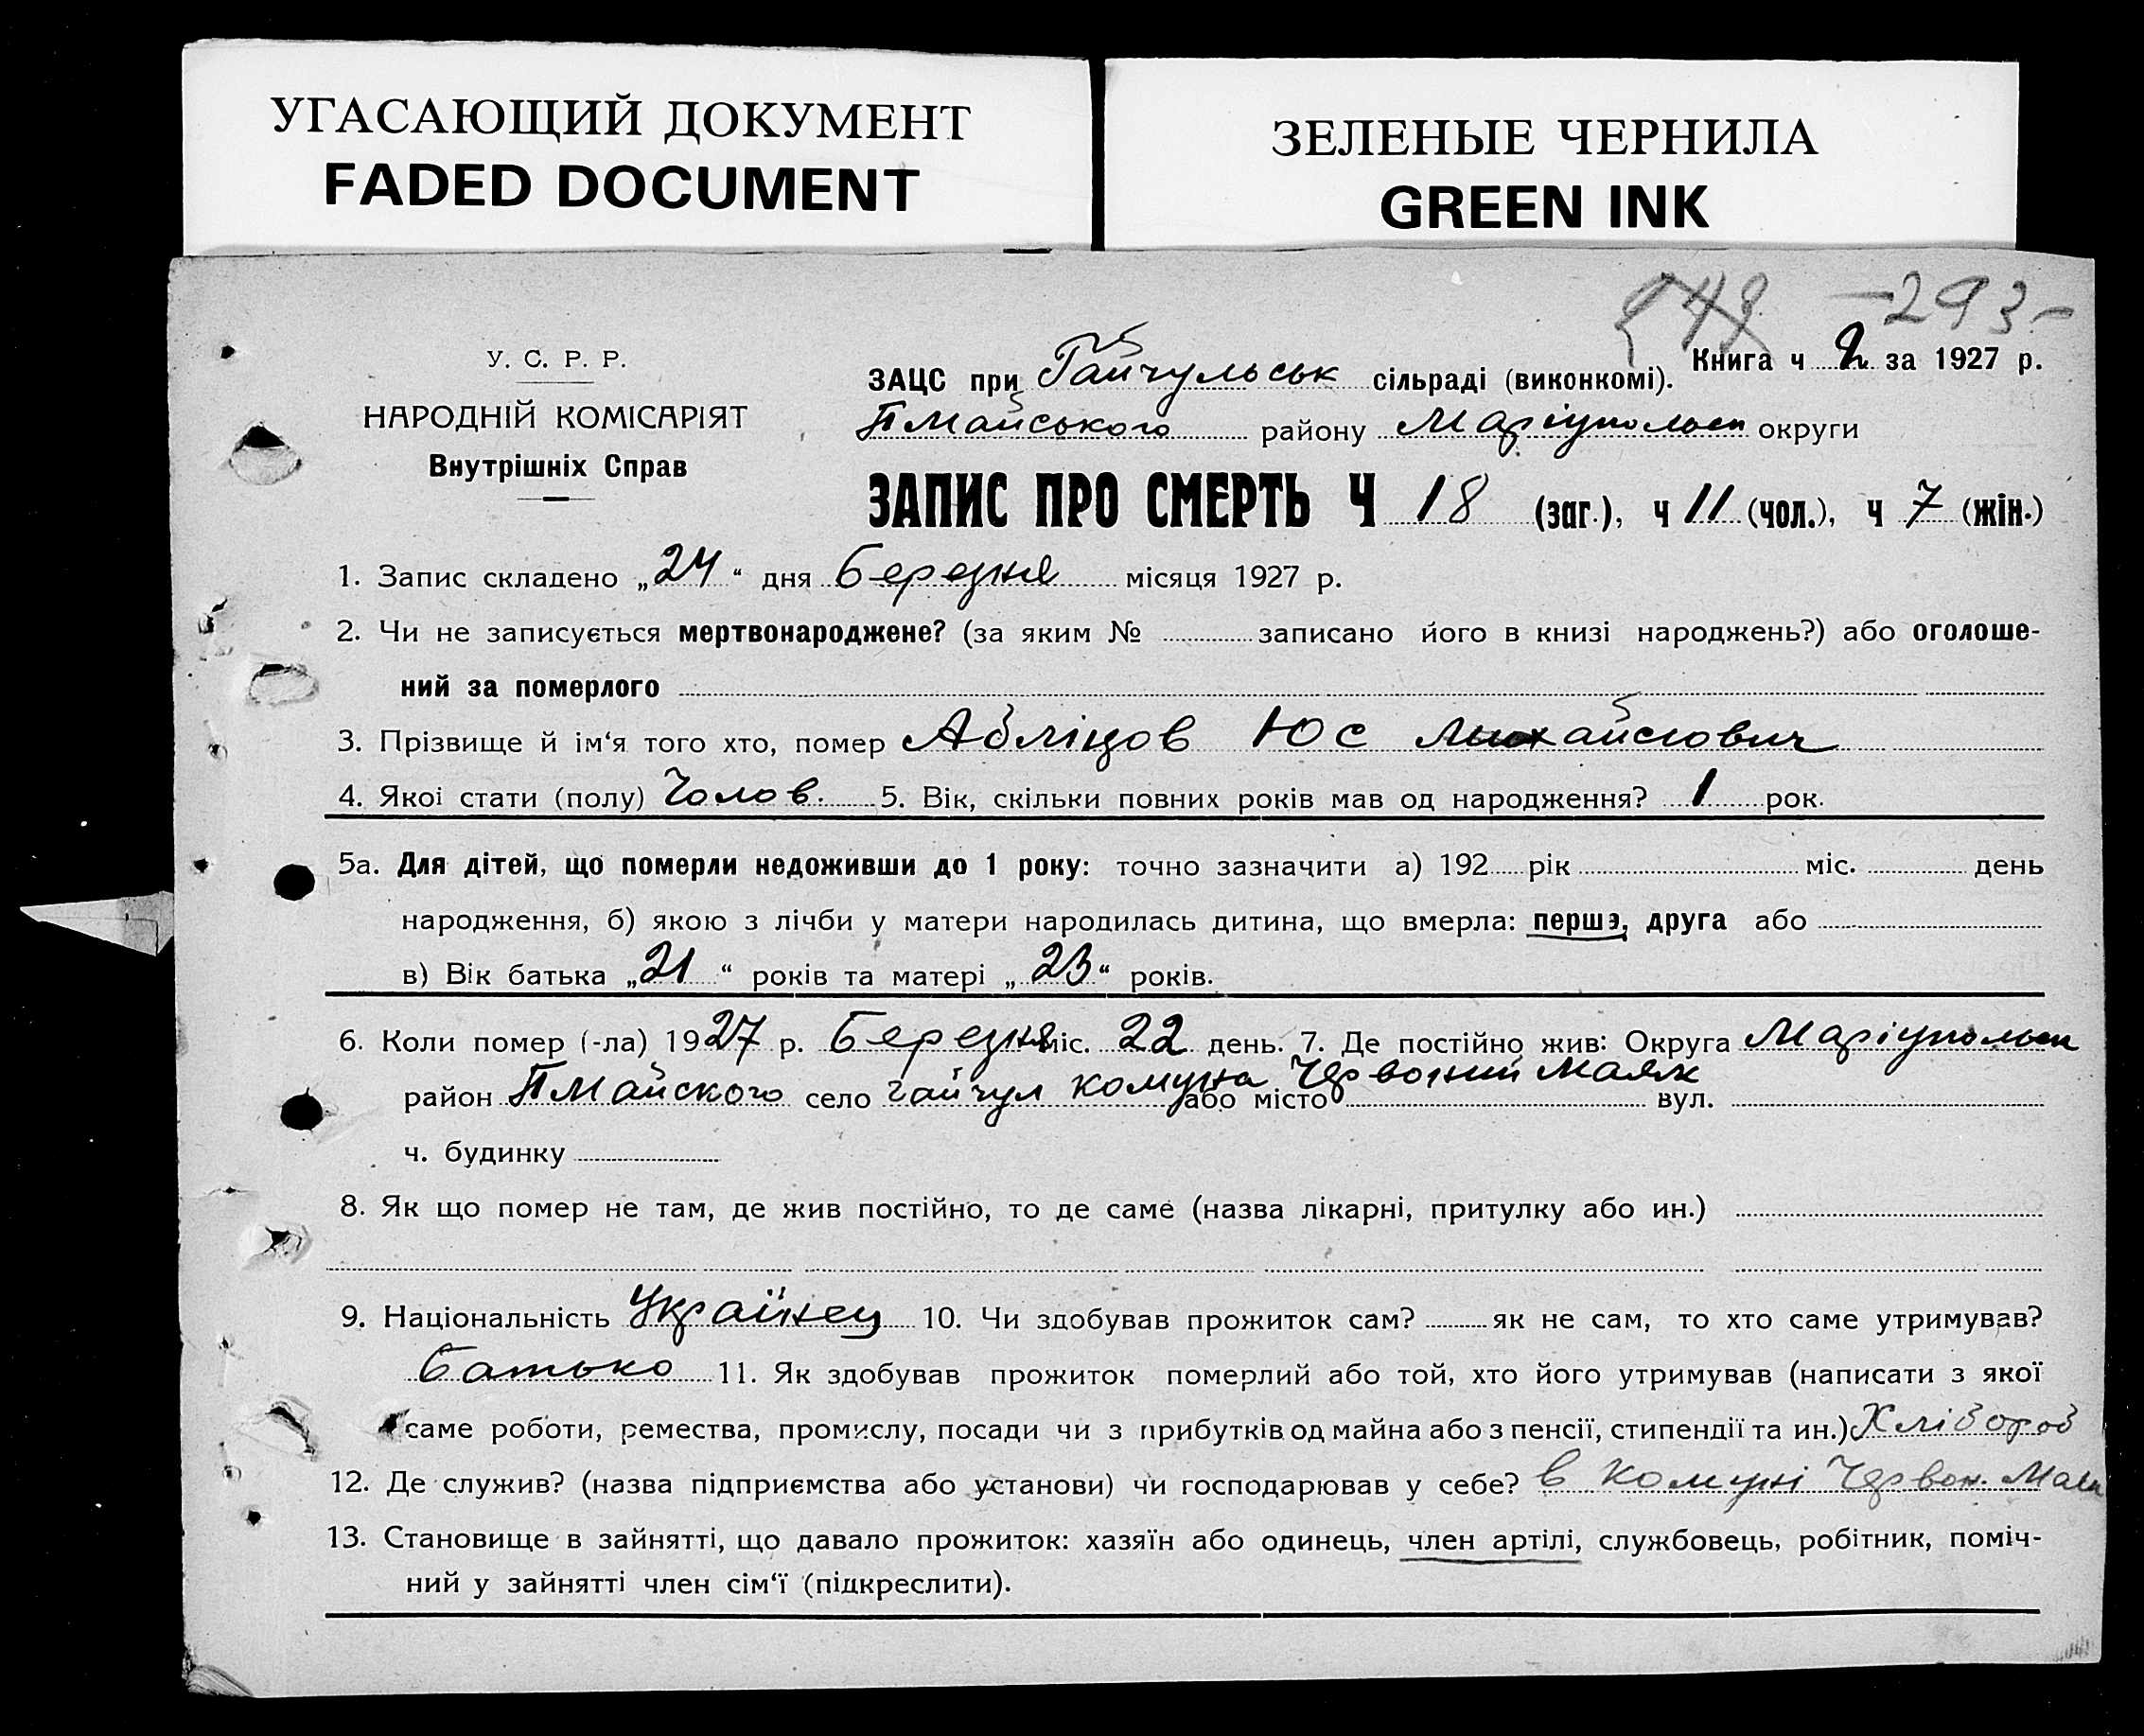 УГАСАЮЩИЙ ДОКУМЕНТ
FADED DOCUMENT
ЗЕЛЕНЫЕ ЧЕРНИЛА
GREEN INK
-293-
У. С. Р. Р.
НАРОДНІЙ КОМІСАРІЯТ
Внутрішніх Справ
Книга ч 2 за 1927 р.
ЗАЦС при Гайчульськ сільраді (виконкомі).
ПМайського району Маріупольськ округи
ЗАПИС ПРО СМЕРТЬ Ч 18 (заг.), ч 11 (чол.), ч 7 (жін.)
1. Запис складено „24“ дня Березня місяця 1927 р.
2. Чи не записується мертвонароджене? (за яким № записано його в книзі народжень?) або оголоше-
ний за померлого
3. Прізвище й ім‘я того хто, помер Абліцов Юс Михайлович
4. Якої стати (полу) Чолов. 5. Вік, скільки повних років мав од народження? 1 рок.
5а. Для дітей, що померли недоживши до 1 року: точно зазначити а) 192 рік міс. день
народження, б) якою з лічби у матери народилась дитина, що вмерла: перша, друга або
в) Вік батька „21“ років та матері „23“ років.
6. Коли помер (-ла) 1927 р. Березня міс. 22 день. 7. Де постійно жив: Округа Маріупольськ
район ПМайского село Гайчул комуна Червоний Маяк або місто вул.
ч. будинку
8. Як що помер не там, де жив постійно, то де саме (назва лікарні, притулку або ин.)
9. Національність Українец 10. Чи здобував прожиток сам? як не сам, то хто саме утримував?
батько 11. Як здобував прожиток померлий або той, хто його утримував (написати з якої
саме роботи, ремества, промислу, посади чи з прибутків од майна або з пенсії, стипендії та ин.) Хлібороб
12. Де служив? (назва підприємства або установи) чи господарював у себе? в комуні Червон. Маяк
13. Становище в зайнятті, що давало прожиток: хазяїн або одинець, член артілі, службовець, робітник, поміч-
ний у зайнятті член сім‘ї (підкреслити).